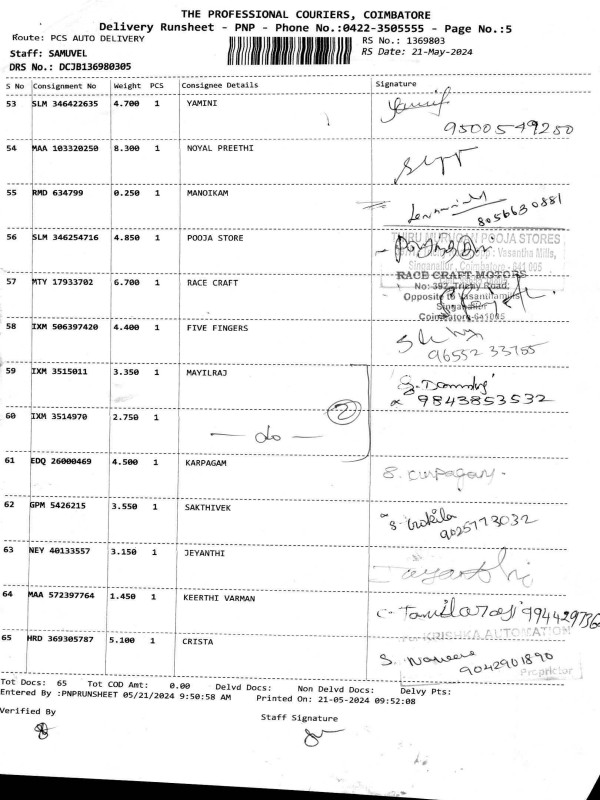 THE PROFESSIONAL COURIERS, COIMBATORE
Delivery Runsheet - PNP - Phone No.:0422-3505555 - Page No.:5
Route: PCS AUTO DELIVERY
RS No.: 1369803
Staff: SAMUVEL
RS Date: 21-May-2024
DRS No.: DCJB136980305
S No Consignment No Weight PCS Consignee Details Signature
53 SLM 346422635 4.700 1 YAMINI
9500549280
54 MAA 103320250 8.300 1 NOYAL PREETHI
55 RMD 634799 0.250 1 MANOIKAM
8056630881
THIRU MURUGAN POOJA STORES
56 SLM 346254716 4.850 1 POOJA STORE
Opp: Vasantha Mills,
Singanallur, Coimbatore - 641 005
RACE CRAFT MOTORS
57 MTY 17933702 6.700 1 RACE CRAFT
No: 392, Trichy Road,
Opposite to Vasanthamills
Singanallur
Coimbatore-641005
58 IXM 506397420 4.400 1 FIVE FINGERS
96552 33755
59 IXM 3515011 3.350 1 MAYILRAJ
9843853532
60 IXM 3514970 2.750 1
2
— do —
61 EDQ 26000469 4.500 1 KARPAGAM
S. Karpagam.
62 GPM 5426215 3.550 1 SAKTHIVEK
S. Kokila
9025773032
63 NEY 40133557 3.150 1 JEYANTHI
Jayanthi
64 MAA 572397764 1.450 1 KEERTHI VARMAN
C. Tamilarasi
For KRISHKA AUTOMATION
65 HRD 369305787 5.100 1 CRISTA
S. Naveena
9042901890
Proprietor
Tot Docs: 65 Tot COD Amt: 0.00 Delvd Docs: Non Delvd Docs: Delvy Pts:
Entered By :PNPRUNSHEET 05/21/2024 9:50:58 AM Printed On: 21-05-2024 09:52:08
Verified By
Staff Signature